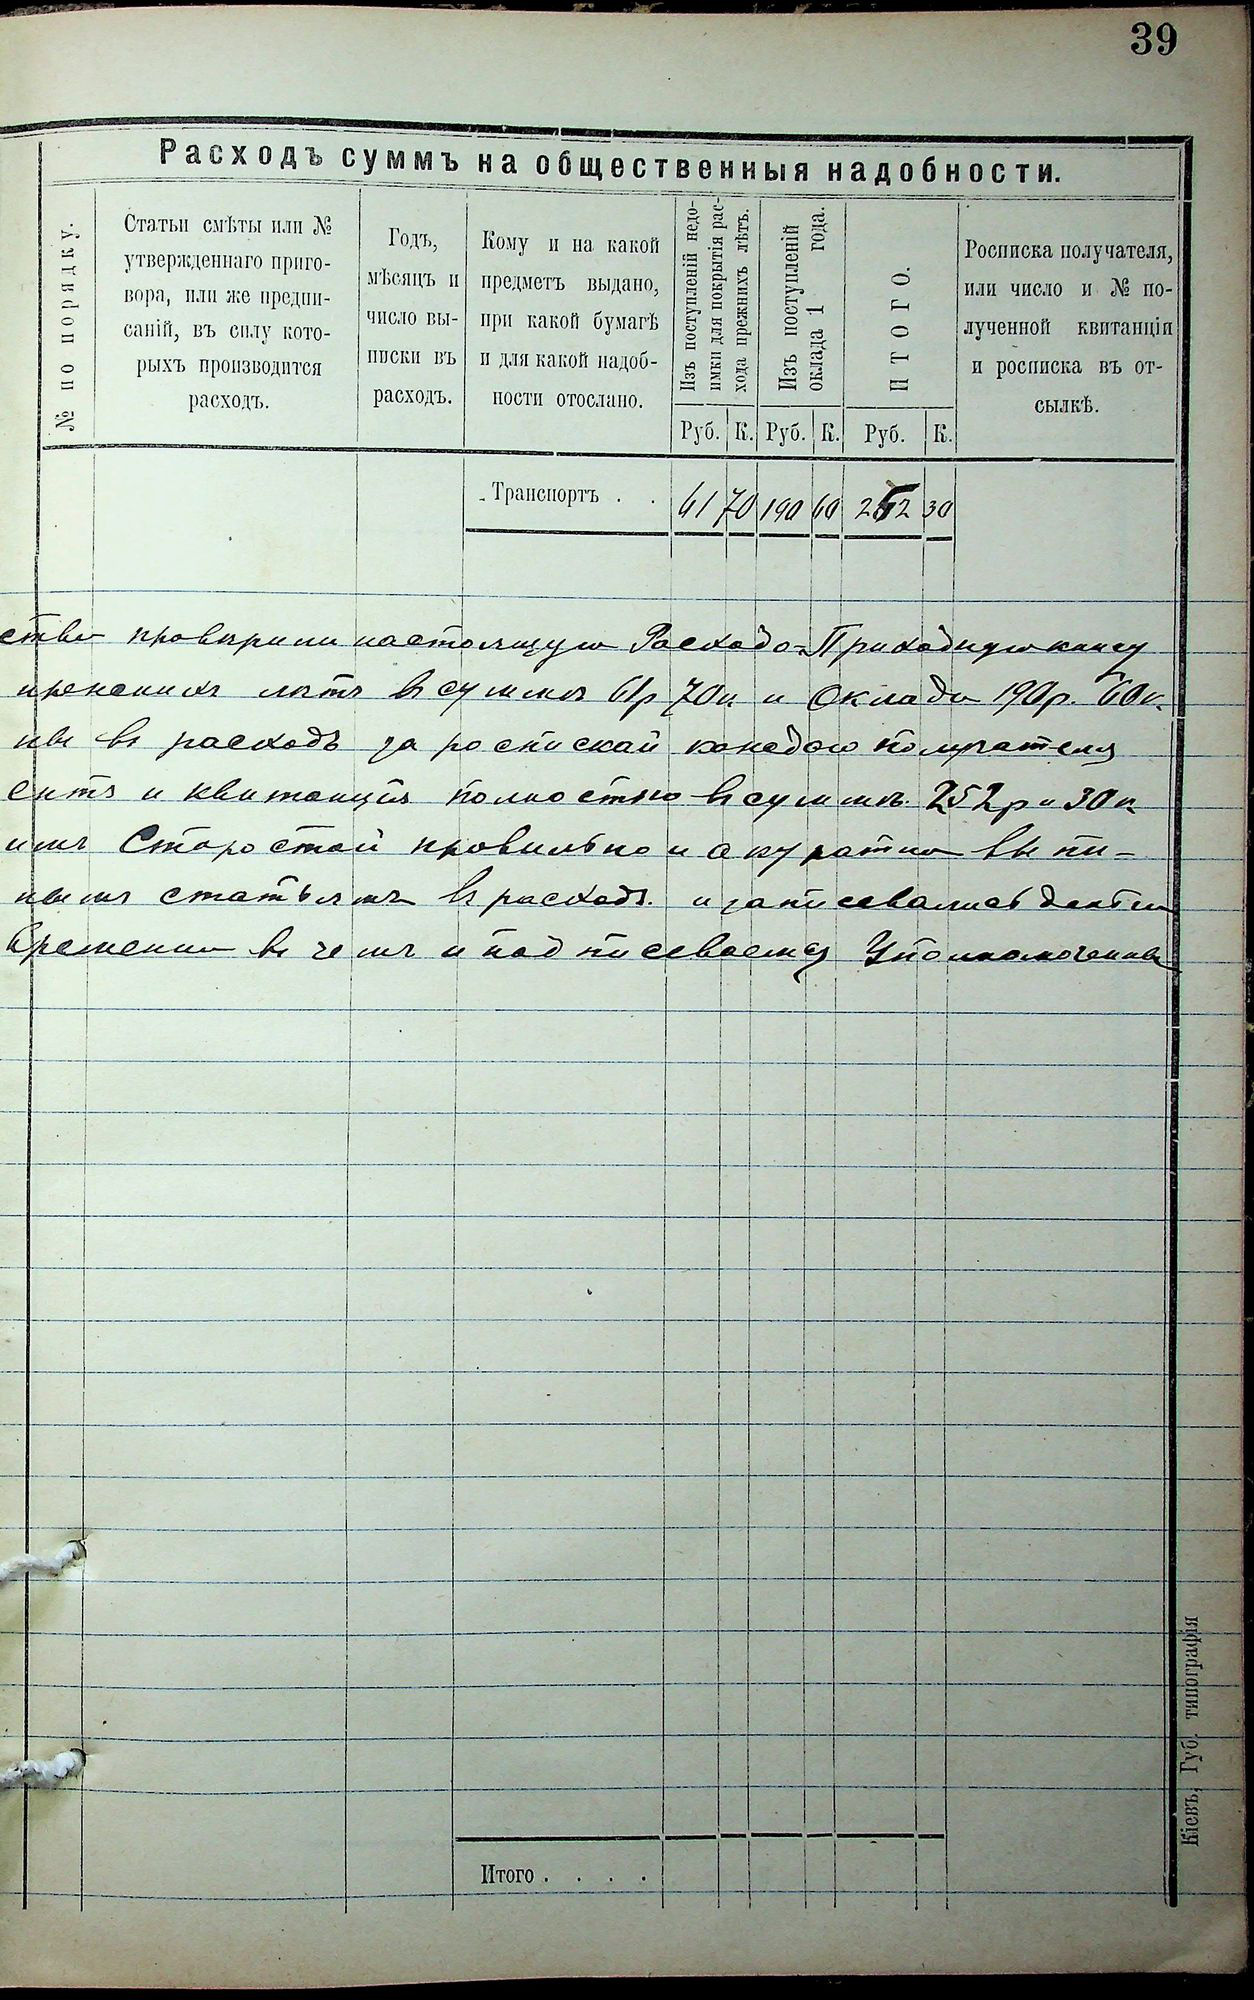 39
Расходъ суммъ на общественныя надобности.
№ по порядку.
Статьи смѣты или №
утвержденнаго приго-
вора, или же предпи-
саній, въ силу кото-
рыхъ производится
расходъ.
Годъ,
мѣсяцъ и
число вы-
писки въ
расходъ.
Кому и на какой
предметъ выдано,
при какой бумагѣ
и для какой надоб-
ности отослано.
Изъ поступленій недо-
имки для покрытія рас-
хода прежнихъ лѣтъ.
Изъ поступленій
оклада 1 года.
ИТОГО.
Росписка получателя,
или число и № по-
лученной квитанціи
и росписка въ от-
сылкѣ.
Руб. К. Руб. К. Руб. К.
Транспортъ . . 61 70 190 60 252 30
ства проверили настоящую Расходо-Приходную книгу
прежнихъ летъ въ сумме 61р 70к и Оклада 190р. 60к.
ны въ расходъ за роспиской каждого получателя
и квитанція полностью въ сумме. 252р и 30к
Старостой правильно и акуратно выпи-
ным статьямъ въ расходъ. и записевались
времени въ чемъ и подписеваемся Уполномоченные
Итого . . . .
Кіевъ, Губ. типографія